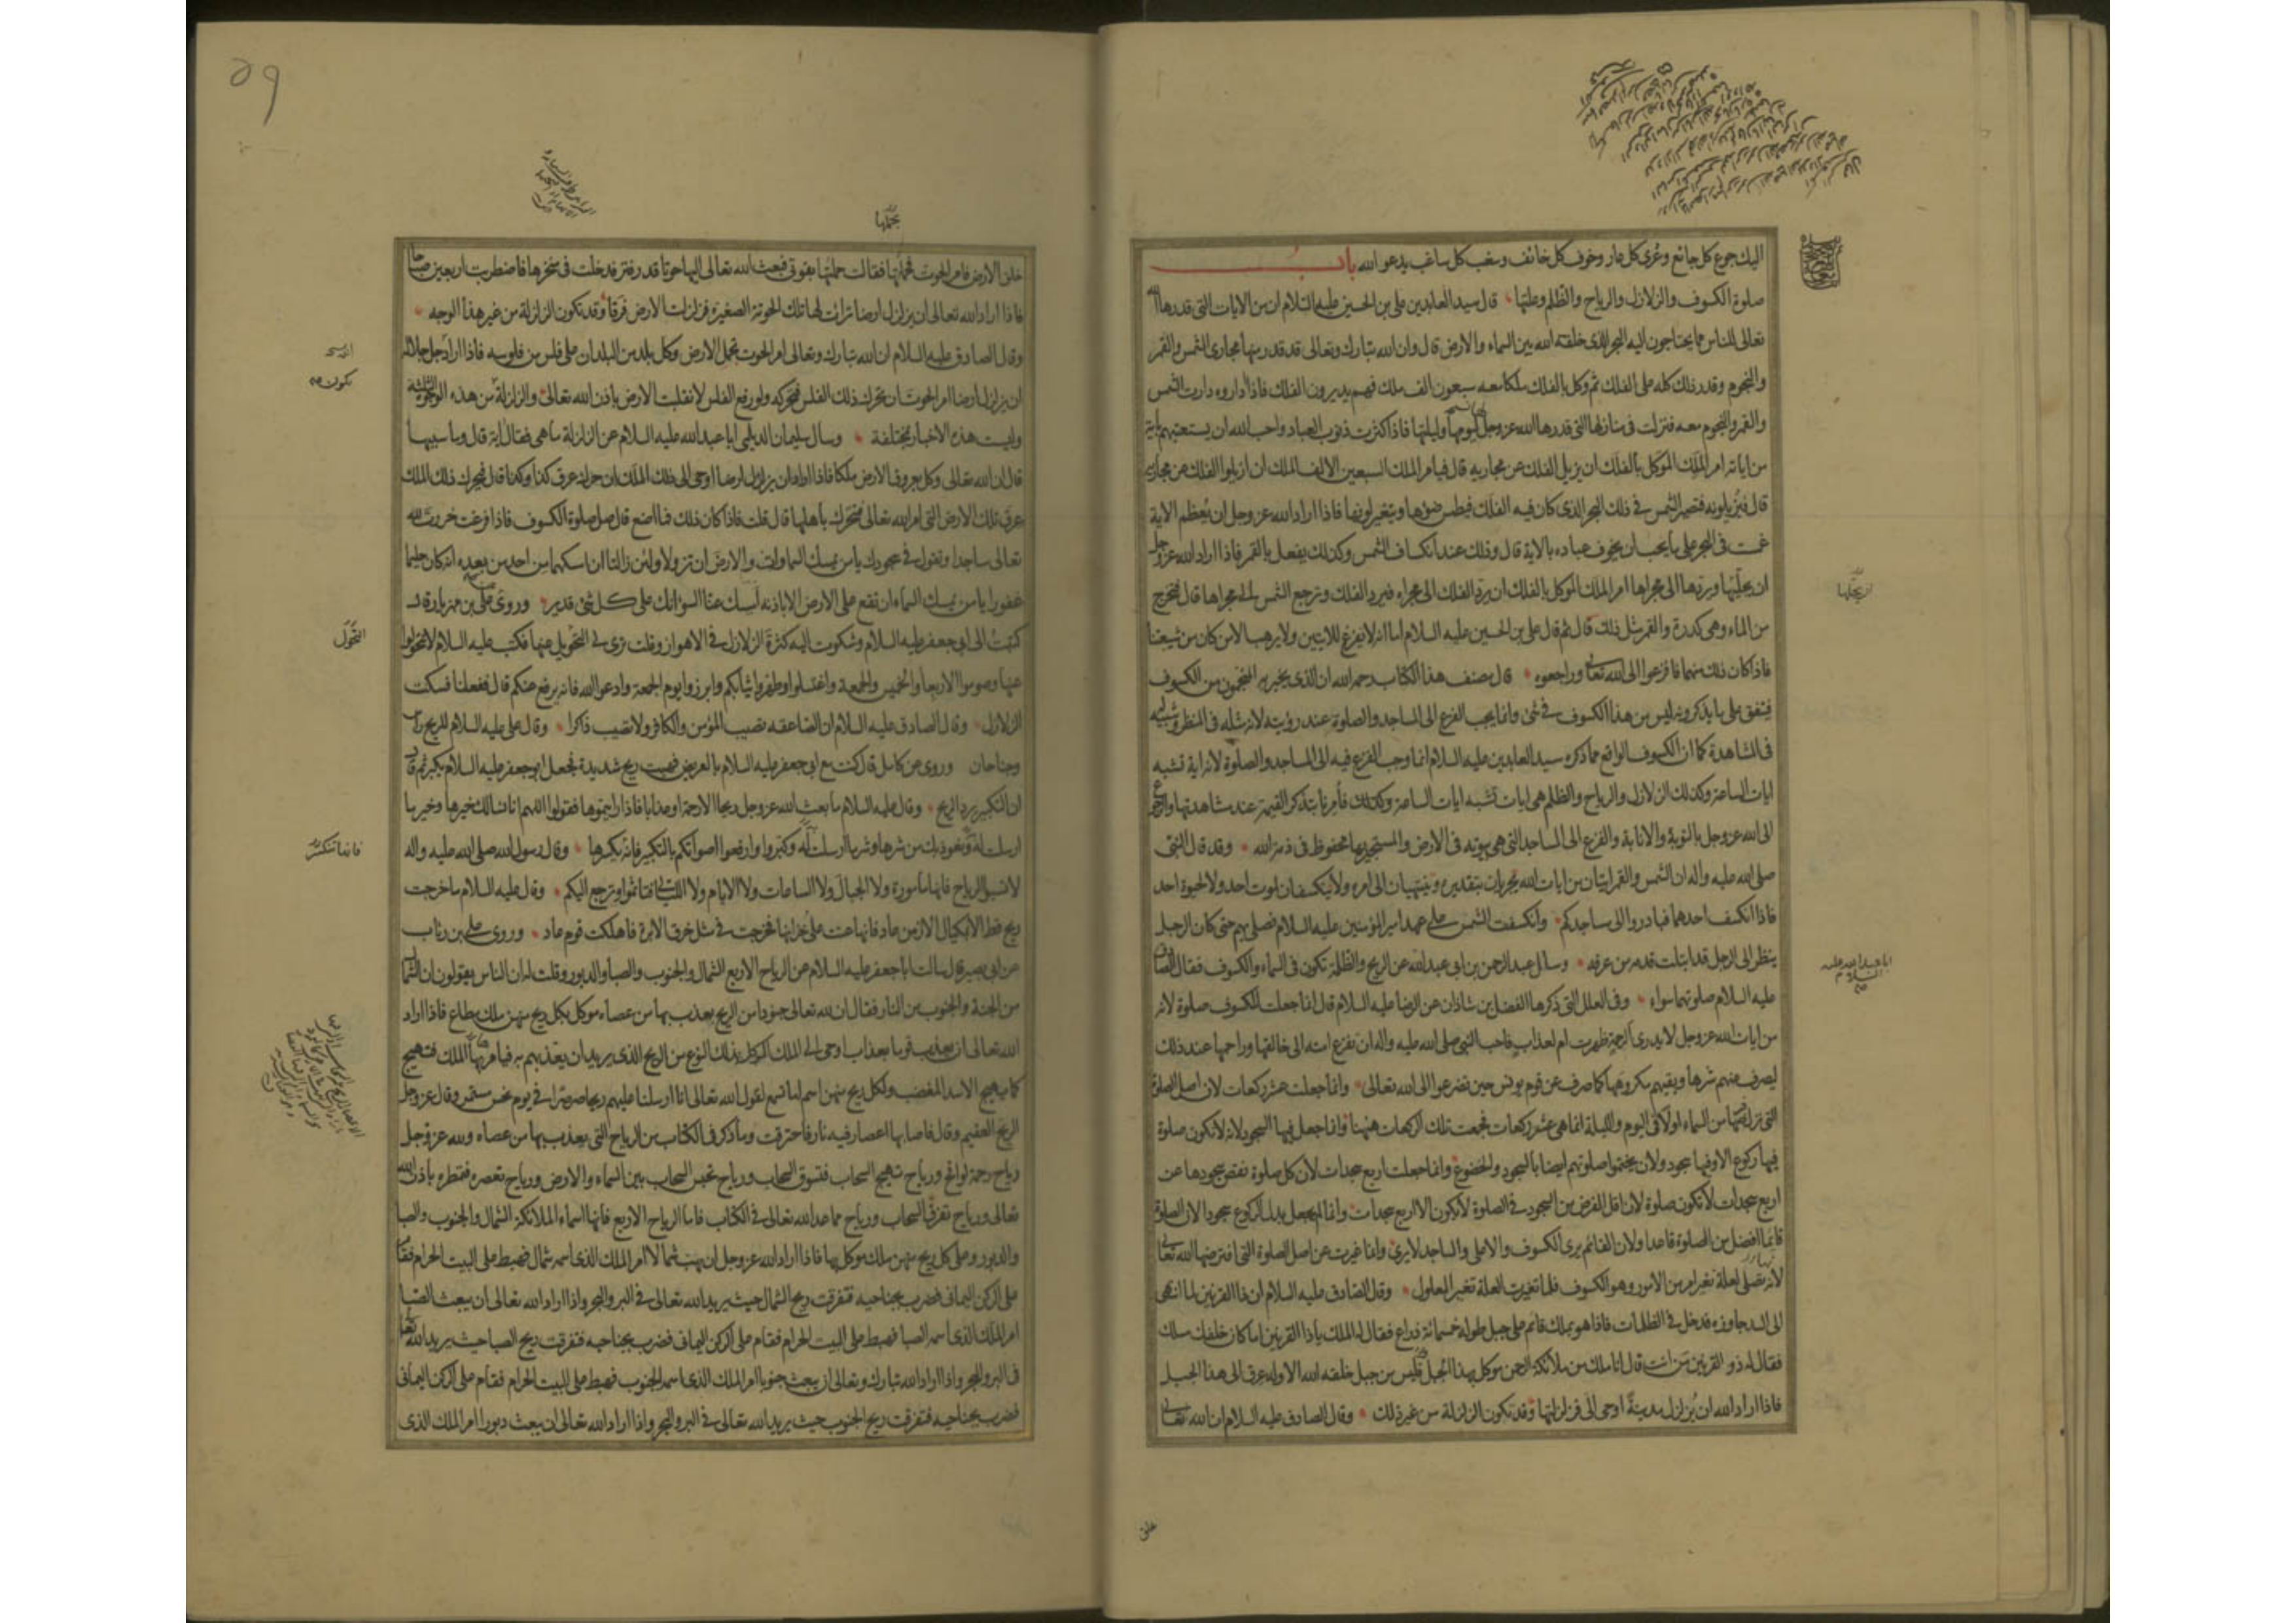 اليك جوع كل جائع وعرى كل عار وخوف كل خائف وسغب كل ساغب يدعو الله باب
صلوة الكسوف والزلازل والرياح والظلم وعلتها قال سيد العابدين على بن الحسين عليه السلام ان من الايات التى قدرها الله
تعالى للناس مما يحتاجون اليه البحر الذى خلقه الله بين السماء والارض قال وان الله تبارك وتعالى قد قدر منها مجارى الشمس والقمر
والنجوم وقدر ذلك كله على الفلك ثم وكل بالفلك ملكا معه سبعون الف ملك فهم يديرون الفلك فاذا اداروه دارت الشمس
والقمر والنجوم معه فنزلت فى منازلها التى قدرها الله عز وجل ليومها وليلتها فاذا كثرت ذنوب العباد واحب الله ان يستعتبهم باية
من اياته امر الملك الموكل بالفلك ان يزيل الفلك عن مجاريه قال فيامر الملك السبعين الالف الملك ان ازيلوا الفلك عن مجاريه
قال فيزيلونه فتصير الشمس فى ذلك البحر الذى كان فيه الفلك فيطمس ضوءها ويتغير لونها فاذا اراد الله عز وجل ان يعظم الاية
غمست فى البحر على ما يحب ان يخوف عباده بالاية قال وذلك عند انكساف الشمس وكذلك يفعل بالقمر فاذا اراد الله عز وجل
ان يجليها ويردها الى مجراها امر الملك الموكل بالفلك ان يرد الفلك الى مجراه فيرد الفلك وترجع الشمس الى مجراها قال فتخرج
من الماء وهى كدرة والقمر مثل ذلك قال ثم قال على بن الحسين عليه السلام اما انه لا يفزع للايتين ولا يرهب الا من كان من شيعتنا
فاذا كان ذلك منهما فافزعوا الى الله تعالى وراجعوه قال مصنف هذا الكتاب رحمه الله ان الذى يخبر به المنجمون من الكسوف
فيتفق على ما يذكرونه ليس من هذا الكسوف فى شئ وانما يجب الفزع الى المساجد والصلوة عند رؤيته لانه مثله فى المنظر وشبيه له
فى المشاهدة كما ان الكسوف الواقع مما ذكره سيد العابدين عليه السلام انما وجب الفزع فيه الى المساجد والصلوة لانه اية تشبه
ايات الساعة وكذلك الزلازل والرياح والظلم هى ايات تشبه ايات الساعة وكذلك فامرنا بتذكر القيمة عند مشاهدتها والرجوع
الى الله عز وجل بالتوبة والانابة والفزع الى المساجد التى هى بيوته فى الارض والمستجير بها محفوظ فى ذمة الله وقد قال النبى
صلى الله عليه واله ان الشمس والقمر ايتان من ايات الله يجريان بتقديره وينتهيان الى امره ولا ينكسفان لموت احد ولا لحيوة احد
فاذا انكسف احدهما فبادروا الى مساجدكم وانكسفت الشمس على عهد امير المؤمنين عليه السلام فصلى بهم حتى كان الرجل
ينظر الى الرجل قد ابتلت قدمه من عرقه وسال عبد الرحمن بن ابى عبد الله عن الريح والظلمة تكون فى السماء والكسوف فقال الصادق
عليه السلام صلوتهما سواء وفى العلل التى ذكرها الفضل بن شاذان عن الرضا عليه السلام قال انما جعلت للكسوف صلوة لانه
من ايات الله عز وجل لا يدرى الرحمة ظهرت ام لعذاب فاحب النبى صلى الله عليه واله ان تفزع امته الى خالقها وراحمها عند ذلك
ليصرف عنهم شرها ويقيهم مكروهها كما صرف عن قوم يونس حين تضرعوا الى الله تعالى وانما جعلت عشر ركعات لان اصل الصلوة
التى نزل فرضها من السماء اولا فى اليوم والليلة انما هى عشر ركعات فجمعت تلك الركعات هيهنا وانما جعل فيها السجود لانه لا تكون صلوة
فيها ركوع الا وفيها سجود ولان يختموا صلوتهم ايضا بالسجود والخضوع وانما جعلت اربع سجدات لان كل صلوة نقص سجودها عن
اربع سجدات لا تكون صلوة لان اقل الفرض من السجود فى الصلوة لا يكون الا اربع سجدات وانما لم يجعل بدل الركوع سجودا لان الصلوة
قائما افضل من الصلوة قاعدا ولان القائم يرى الكسوف والاعلى والساجد لا يرى وانما غيرت عن اصل الصلوة التى افترضها الله تعالى
لانه تصلى لعلة تغير امر من الامور وهو الكسوف فلما تغيرت العلة تغير المعلول وقال الصادق عليه السلام ان ذا القرنين لما انتهى
الى السد جاوزه فدخل فى الظلمات فاذا هو بملك قائم على جبل طوله خمسمائة ذراع فقال له الملك يا ذا القرنين اما كان خلفك مسلك
فقال له ذو القرنين من انت قال انا ملك من ملائكة الرحمن موكل بهذا الجبل فليس من جبل خلقه الله الا وله عرق الى هذا الجبل
فاذا اراد الله ان يزلزل مدينة اوحى الى فزلزلتها وقد تكون الزلزلة من غير ذلك وقال الصادق عليه السلام ان الله تعالى
ان يجليها
ابا عبد الله عليه السلام
خلق
٥٩
تحملها
خلق الارض فامر الحوت فحملتها فقالت حملتها بقوتى فبعث الله تعالى اليها حوتا قدر فتر فدخلت فى منخرها فاضطربت اربعين صباحا
فاذا اراد الله تعالى ان يزلزل ارضا تراءت لها تلك الحوتة الصغيرة فزلزلت الارض فرقا وقد تكون الزلزلة من غير هذا الوجه
وقال الصادق عليه السلام ان الله تبارك وتعالى امر الحوت بحمل الارض وكل بلد من البلدان على فلس من فلوسه فاذا اراد جل جلاله
ان يزلزل ارضا امر الحوت ان يحرك ذلك الفلس فيحركه ولو رفع الفلس لانقلبت الارض باذن الله تعالى والزلزلة من هذه الوجوه الثلثة
وليست هذه الاخبار مختلفة وسال سليمان الديلمى ابا عبد الله عليه السلام عن الزلزلة ما هى فقال اية قال وما سببها
قال ان الله تعالى وكل بعروق الارض ملكا فاذا اراد ان يزلزل ارضا اوحى الى ذلك الملك ان حرك عرق كذا وكذا قال فيحرك ذلك الملك
عرق تلك الارض التى امر الله تعالى فتتحرك باهلها قال قلت فاذا كان ذلك فما اصنع قال صل صلوة الكسوف فاذا فرغت خررت لله
تعالى ساجدا وتقول فى سجودك يا من يمسك السماوات والارض ان تزولا ولئن زالتا ان امسكهما من احد من بعده انه كان حليما
غفورا يا من يمسك السماء ان تقع على الارض الا باذنه امسك عنا السوء انك على كل شئ قدير وروى على بن مهزيار قال
كتبت الى ابى جعفر عليه السلام وشكوت اليه كثرة الزلازل فى الاهواز وقلت ترى لى التحويل عنها فكتب عليه السلام لا تتحولوا
عنها وصوموا الاربعاء والخميس والجمعة واغتسلوا وطهروا ثيابكم وابرزوا يوم الجمعة وادعوا الله فانه يرفع عنكم قال ففعلنا فسكنت
الزلازل وقال الصادق عليه السلام ان الصاعقة تصيب المؤمن والكافر ولا تصيب ذاكرا وقال على عليه السلام للريح راس
وجناحان وروى عن كامل قال كنت مع ابى جعفر عليه السلام بالعريض فهبت ريح شديدة فجعل ابو جعفر عليه السلام يكبر ثم قال
ان التكبير يرد الريح وقال عليه السلام ما بعث الله عز وجل ريحا الا رحمة او عذابا فاذا رايتموها فقولوا اللهم انا نسالك خيرها وخير ما
ارسلت له ونعوذ بك من شرها وشر ما ارسلت له وكبروا وارفعوا اصواتكم بالتكبير فانه يكسرها وقال رسول الله صلى الله عليه واله
لا تسبوا الرياح فانها مامورة ولا الجبال ولا الساعات ولا الايام ولا الليالى فتاثموا وترجع اليكم وقال عليه السلام ما خرجت
ريح قط الا بمكيال الا زمن عاد فانها عتت على خزانها فخرجت فى مثل خرق الابرة فاهلكت قوم عاد وروى على بن رئاب
عن ابى بصير قال سالت ابا جعفر عليه السلام عن الرياح الاربع الشمال والجنوب والصبا والدبور وقلت له ان الناس يقولون ان الشمال
من الجنة والجنوب من النار فقال ان لله تعالى جنودا من الريح يعذب بها من عصاه موكل بكل ريح منهن ملك مطاع فاذا اراد
الله تعالى ان يعذب قوما بعذاب اوحى الى الملك الموكل بذلك النوع من الريح الذى يريد ان يعذبهم به فيامر بها الملك فتهيج
كما يهيج الاسد المغضب ولكل ريح منهن اسم اما تسمع لقول الله تعالى انا ارسلنا عليهم ريحا صرصرا فى يوم نحس مستمر وقال عز وجل
الريح العقيم وقال فاصابها اعصار فيه نار فاحترقت وما ذكر فى الكتاب من الرياح التى يعذب بها من عصاه ولله عز وجل
رياح رحمة لواقح ورياح تهيج السحاب فتسوق السحاب ورياح تحبس السحاب بين السماء والارض ورياح تعصره فتمطره باذن الله
تعالى ورياح تفرق السحاب ورياح مما عد الله تعالى فى الكتاب فاما الرياح الاربع فانها اسماء الملائكة الشمال والجنوب والصبا
والدبور وعلى كل ريح منهن ملك موكل بها فاذا اراد الله عز وجل ان يهب شمالا امر الملك الذى اسمه شمال فهبط على البيت الحرام فقام
على الركن اليمانى فضرب بجناحيه فتفرقت ريح الشمال حيث يريد الله تعالى فى البر والبحر واذا اراد الله تعالى ان يبعث الصبا
امر الملك الذى اسمه الصبا فهبط على البيت الحرام فقام على الركن اليمانى فضرب بجناحيه فتفرقت ريح الصبا حيث يريد الله تعالى
فى البر والبحر واذا اراد الله تبارك وتعالى ان يبعث جنوبا امر الملك الذى اسمه الجنوب فهبط على البيت الحرام فقام على الركن اليمانى
فضرب بجناحيه فتفرقت ريح الجنوب حيث يريد الله تعالى فى البر والبحر واذا اراد الله تعالى ان يبعث دبورا امر الملك الذى
تكون
التحول